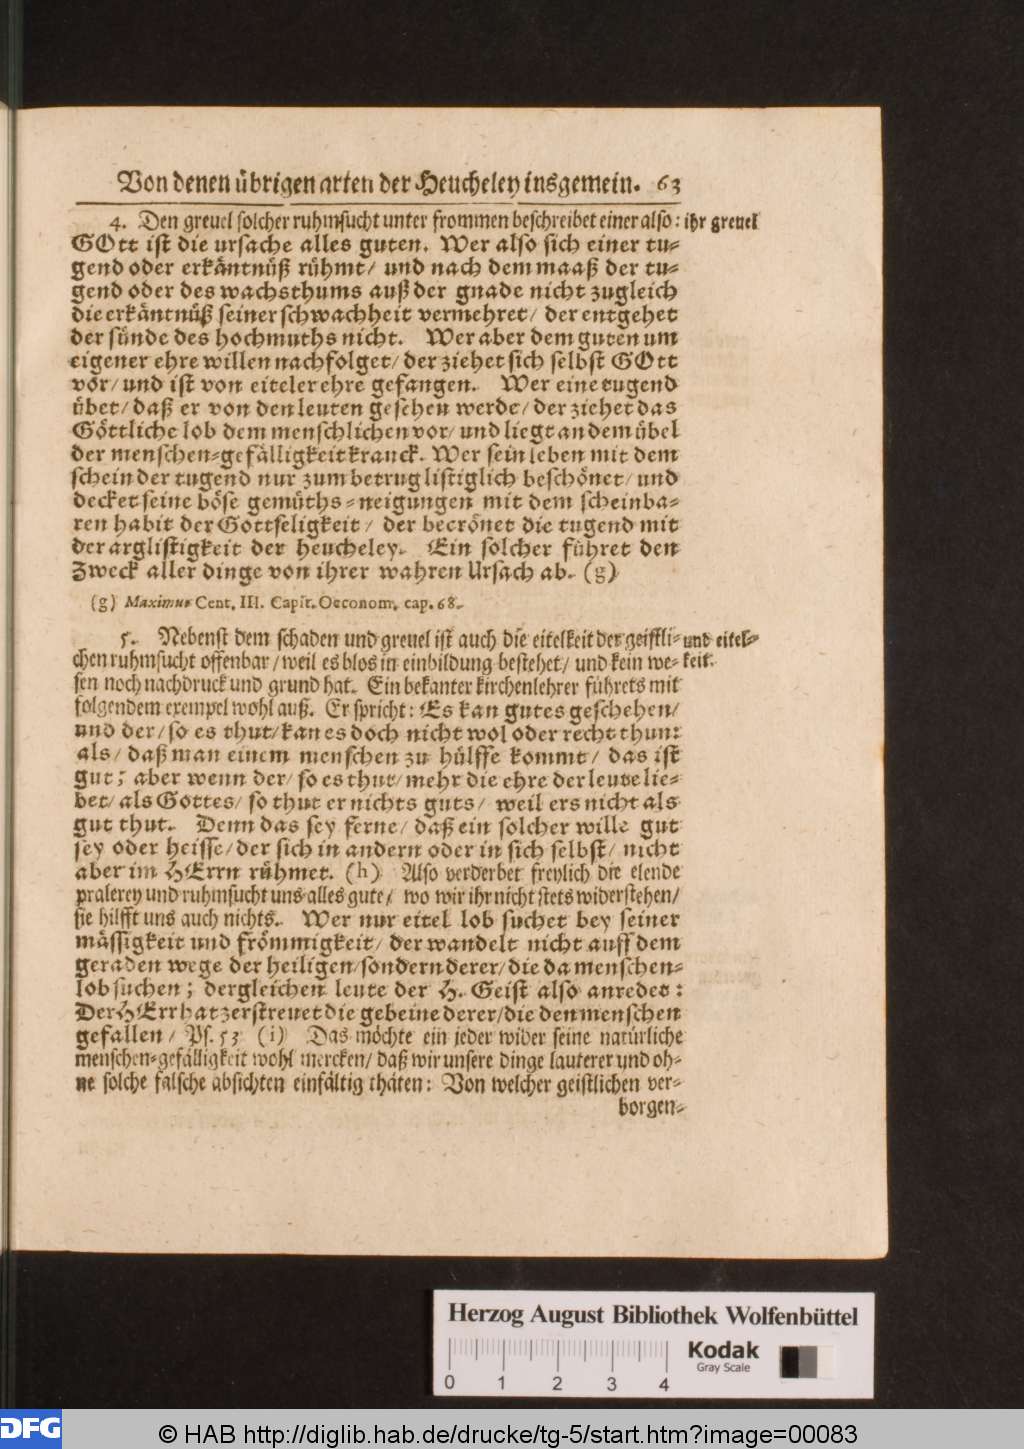 Von denen übrigen arten der Heucheley insgemein. 63
4. Den greuel solcher ruhmsucht unter frommen beschreibet einer also: ihr greuel
GOtt ist die ursache alles guten. Wer also sich einer tu-
gend oder erkäntnüß rühmt/ und nach dem maaß der tu-
gend oder des wachsthums auß der gnade nicht zugleich
die erkäntnüß seiner schwachheit vermehret/ der entgehet
der sünde des hochmuths nicht. Wer aber dem guten um
eigener ehre willen nachfolget/ der ziehet sich selbst GOtt
vor/ und ist von eiteler ehre gefangen. Wer eine tugend
übet/ daß er von den leuten gesehen werde/ der ziehet das
Göttliche lob dem menschlichen vor/ und liegt an dem übel
der menschen-gefälligkeit kranck. Wer sein leben mit dem
schein der tugend nur zum betrug listiglich beschönet/ und
decket seine böse gemüths-neigungen mit dem scheinba-
ren habit der Gottseligkeit/ der becrönet die tugend mit
der arglistigkeit der heucheley. Ein solcher führet den
Zweck aller dinge von ihrer wahren Ursach ab. (g)
(g) Maximus Cent. III. Capit. Oeconom. cap. 68.
5. Nebenst dem schaden und greuel ist auch die eitelkeit der geistli- und eitel-
chen ruhmsucht offenbar/ weil es blos in einbildung bestehet/ und kein we- keit.
sen noch nachdruck und grund hat. Ein bekanter kirchenlehrer führets mit
folgendem exempel wohl auß. Er spricht: Es kan gutes geschehen/
und der/ so es thut/ kan es doch nicht wol oder recht thun:
als/ daß man einem menschen zu hülffe kommt/ das ist
gut; aber wenn der/ so es thut/ mehr die ehre der leute lie-
bet/ als Gottes/ so thut er nichts guts/ weil ers nicht als
gut thut. Denn das sey ferne/ daß ein solcher wille gut
sey oder heisse/ der sich in andern oder in sich selbst/ nicht
aber im HErrn rühmet. (h) Also verderbet freylich die elende
pralerey und ruhmsucht uns alles gute/ wo wir ihr nicht stets widerstehen/
sie hilfft uns auch nichts. Wer nur eitel lob suchet bey seiner
mässigkeit und frömmigkeit/ der wandelt nicht auff dem
geraden wege der heiligen/ sondern derer/ die da menschen-
lob suchen; dergleichen leute der H. Geist also anredet:
Der HErr hat zerstreuet die gebeine derer/ die den menschen
gefallen/ Ps. 53 (i) Das möchte ein jeder wider seine natürliche
menschen-gefälligkeit wohl mercken/ daß wir unsere dinge lauterer und oh-
ne solche falsche absichten einfältig thäten: Von welcher geistlichen ver-
borgen-
Herzog August Bibliothek Wolfenbüttel
0 1 2 3 4
Kodak
Gray Scale
DFG © HAB http://diglib.hab.de/drucke/tg-5/start.htm?image=00083